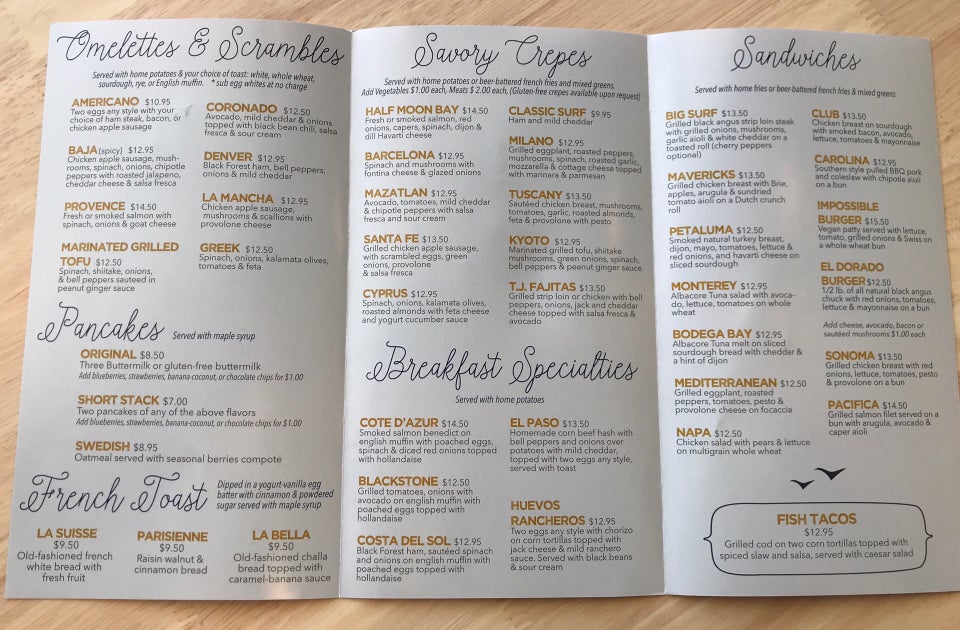 Omelettes & Scrambles
Served with home potatoes & your choice of toast: white, whole wheat,
sourdough, rye, or English muffin. * sub egg whites at no charge
AMERICANO $10.95
Two eggs any style with your
choice of ham steak, bacon, or
chicken apple sausage
BAJA (spicy) $12.95
Chicken apple sausage, mush-
rooms, spinach, onions, chipotle
peppers with roasted jalapeno,
cheddar cheese & salsa fresca
PROVENCE $14.50
Fresh or smoked salmon with
spinach, onions & goat cheese
MARINATED GRILLED
TOFU $12.50
Spinach, shiitake, onions,
& bell peppers sauteed in
peanut ginger sauce
CORONADO $12.50
Avocado, mild cheddar & onions
topped with black bean chili, salsa
fresca & sour cream
DENVER $12.95
Black Forest ham, bell peppers,
onions & mild cheddar
LA MANCHA $12.95
Chicken apple sausage,
mushrooms & scallions with
provolone cheese
GREEK $12.50
Spinach, onions, kalamata olives,
tomatoes & feta
Pancakes Served with maple syrup
ORIGINAL $8.50
Three Buttermilk or gluten-free buttermilk
Add blueberries, strawberries, banana-coconut, or chocolate chips for $1.00
SHORT STACK $7.00
Two pancakes of any of the above flavors
Add blueberries, strawberries, banana-coconut, or chocolate chips for $1.00
SWEDISH $8.95
Oatmeal served with seasonal berries compote
French Toast
Dipped in a yogurt-vanilla egg
batter with cinnamon & powdered
sugar served with maple syrup
LA SUISSE
$9.50
Old-fashioned french
white bread with
fresh fruit
PARISIENNE
$9.50
Raisin walnut &
cinnamon bread
LA BELLA
$9.50
Old-fashioned challa
bread topped with
caramel-banana sauce
Savory Crepes
Served with home potatoes or beer-battered french fries and mixed greens.
Add Vegetables $1.00 each, Meats $ 2.00 each, (Gluten-free crepes available upon request)
HALF MOON BAY $14.50
Fresh or smoked salmon, red
onions, capers, spinach, dijon &
dill Havarti cheese
BARCELONA $12.95
Spinach and mushrooms with
fontina cheese & glazed onions
MAZATLAN $12.95
Avocado, tomatoes, mild cheddar
& chipotle peppers with salsa
fresca and sour cream
SANTA FE $13.50
Grilled chicken apple sausage,
with scrambled eggs, green
onions, provolone
& salsa fresca
CYPRUS $12.95
Spinach, onions, kalamata olives,
roasted almonds with feta cheese
and yogurt cucumber sauce
CLASSIC SURF $9.95
Ham and mild cheddar
MILANO $12.95
Grilled eggplant, roasted peppers,
mushrooms, spinach, roasted garlic,
mozzarella & cottage cheese topped
with marinara & parmesan
TUSCANY $13.50
Sautéed chicken breast, mushrooms,
tomatoes, garlic, roasted almonds,
feta & provolone with pesto
KYOTO $12.95
Marinated grilled tofu, shiitake
mushrooms, green onions, spinach,
bell peppers & peanut ginger sauce
T.J. FAJITAS $13.50
Grilled strip loin or chicken with bell
peppers, onions, jack and cheddar
cheese topped with salsa fresca &
avocado
Breakfast Specialties
Served with home potatoes
COTE D'AZUR $14.50
Smoked salmon benedict on
english muffin with poached eggs,
spinach & diced red onions topped
with hollandaise
BLACKSTONE $12.50
Grilled tomatoes, onions with
avocado on english muffin with
poached eggs topped with
hollandaise
COSTA DEL SOL $12.95
Black Forest ham, sautéed spinach
and onions on english muffin with
poached eggs topped with
hollandaise
EL PASO $13.50
Homemade corn beef hash with
bell peppers and onions over
potatoes with mild cheddar,
topped with two eggs any style,
served with toast
HUEVOS
RANCHEROS $12.95
Two eggs any style with chorizo
on corn tortillas topped with
jack cheese & mild ranchero
sauce. Served with black beans
& sour cream
Sandwiches
Served with home fries or beer-battered french fries & mixed greens
BIG SURF $13.50
Grilled black angus strip loin steak
with grilled onions, mushrooms,
garlic aioli & white cheddar on a
toasted roll (cherry peppers
optional)
MAVERICKS $13.50
Grilled chicken breast with Brie,
apples, arugula & sundried
tomato aioli on a Dutch crunch
roll
PETALUMA $12.50
Smoked natural turkey breast,
dijon, mayo, tomatoes, lettuce &
red onions, and havarti cheese on
sliced sourdough
MONTEREY $12.95
Albacore Tuna salad with avoca-
do, lettuce, tomatoes on whole
wheat
BODEGA BAY $12.95
Albacore Tuna melt on sliced
sourdough bread with cheddar &
a hint of dijon
MEDITERRANEAN $12.50
Grilled eggplant, roasted
peppers, tomatoes, pesto &
provolone cheese on focaccia
NAPA $12.50
Chicken salad with pears & lettuce
on multigrain whole wheat
CLUB $13.50
Chicken breast on sourdough
with smoked bacon, avocado,
lettuce, tomatoes & mayonnaise
CAROLINA $12.95
Southern style pulled BBQ pork
and coleslaw with chipotle aioli
on a bun
IMPOSSIBLE
BURGER $15.50
Vegan patty served with lettuce,
tomato, grilled onions & Swiss on
a whole wheat bun
EL DORADO
BURGER $12.50
1/2 lb. of all natural black angus
chuck with red onions, tomatoes,
lettuce & mayonnaise on a bun
Add cheese, avocado, bacon or
sautéed mushrooms $1.00 each
SONOMA $13.50
Grilled chicken breast with red
onions, lettuce, tomatoes, pesto
& provolone on a bun
PACIFICA $14.50
Grilled salmon filet served on a
bun with arugula, avocado &
caper aioli
FISH TACOS
$12.95
Grilled cod on two corn tortillas topped with
spiced slaw and salsa, served with caesar salad